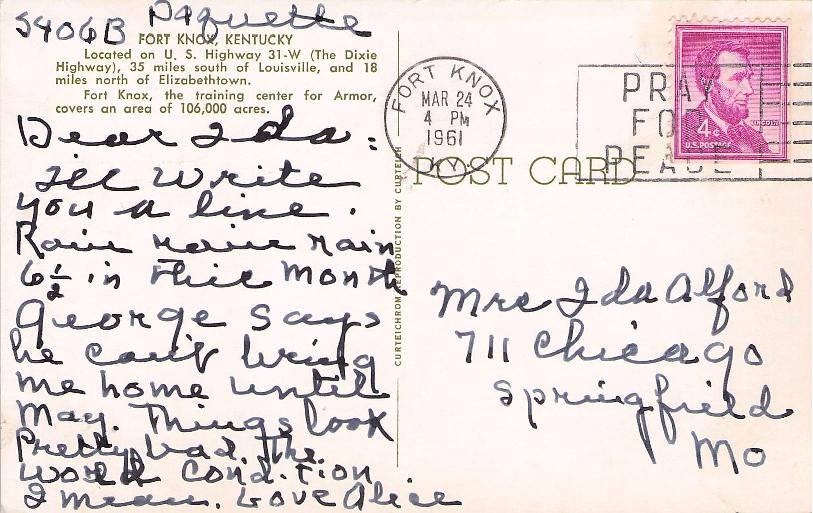 5406B Paquette
FORT KNOX, KENTUCKY
Located on U. S. Highway 31-W (The Dixie
Highway), 35 miles south of Louisville, and 18
miles north of Elizabethtown.
Fort Knox, the training center for Armor,
covers an area of 106,000 acres.
Dear Ida:
I'll Write
you a line.
Rain rain rain
6½ in this Month
George says
he can't bring
me home until
May. Things look
Pretty bad. The
World Condition
I mean. Love Alice
CURTEICHROM REPRODUCTION BY CURTEICH
FORT KNOX
MAR 24
4 PM
1961
KY.
PRAY
FOR
PEACE
LINCOLN
4¢
U.S. POSTAGE
POST CARD
Mrs Ida Alford
711 Chicago
Springfield
Mo